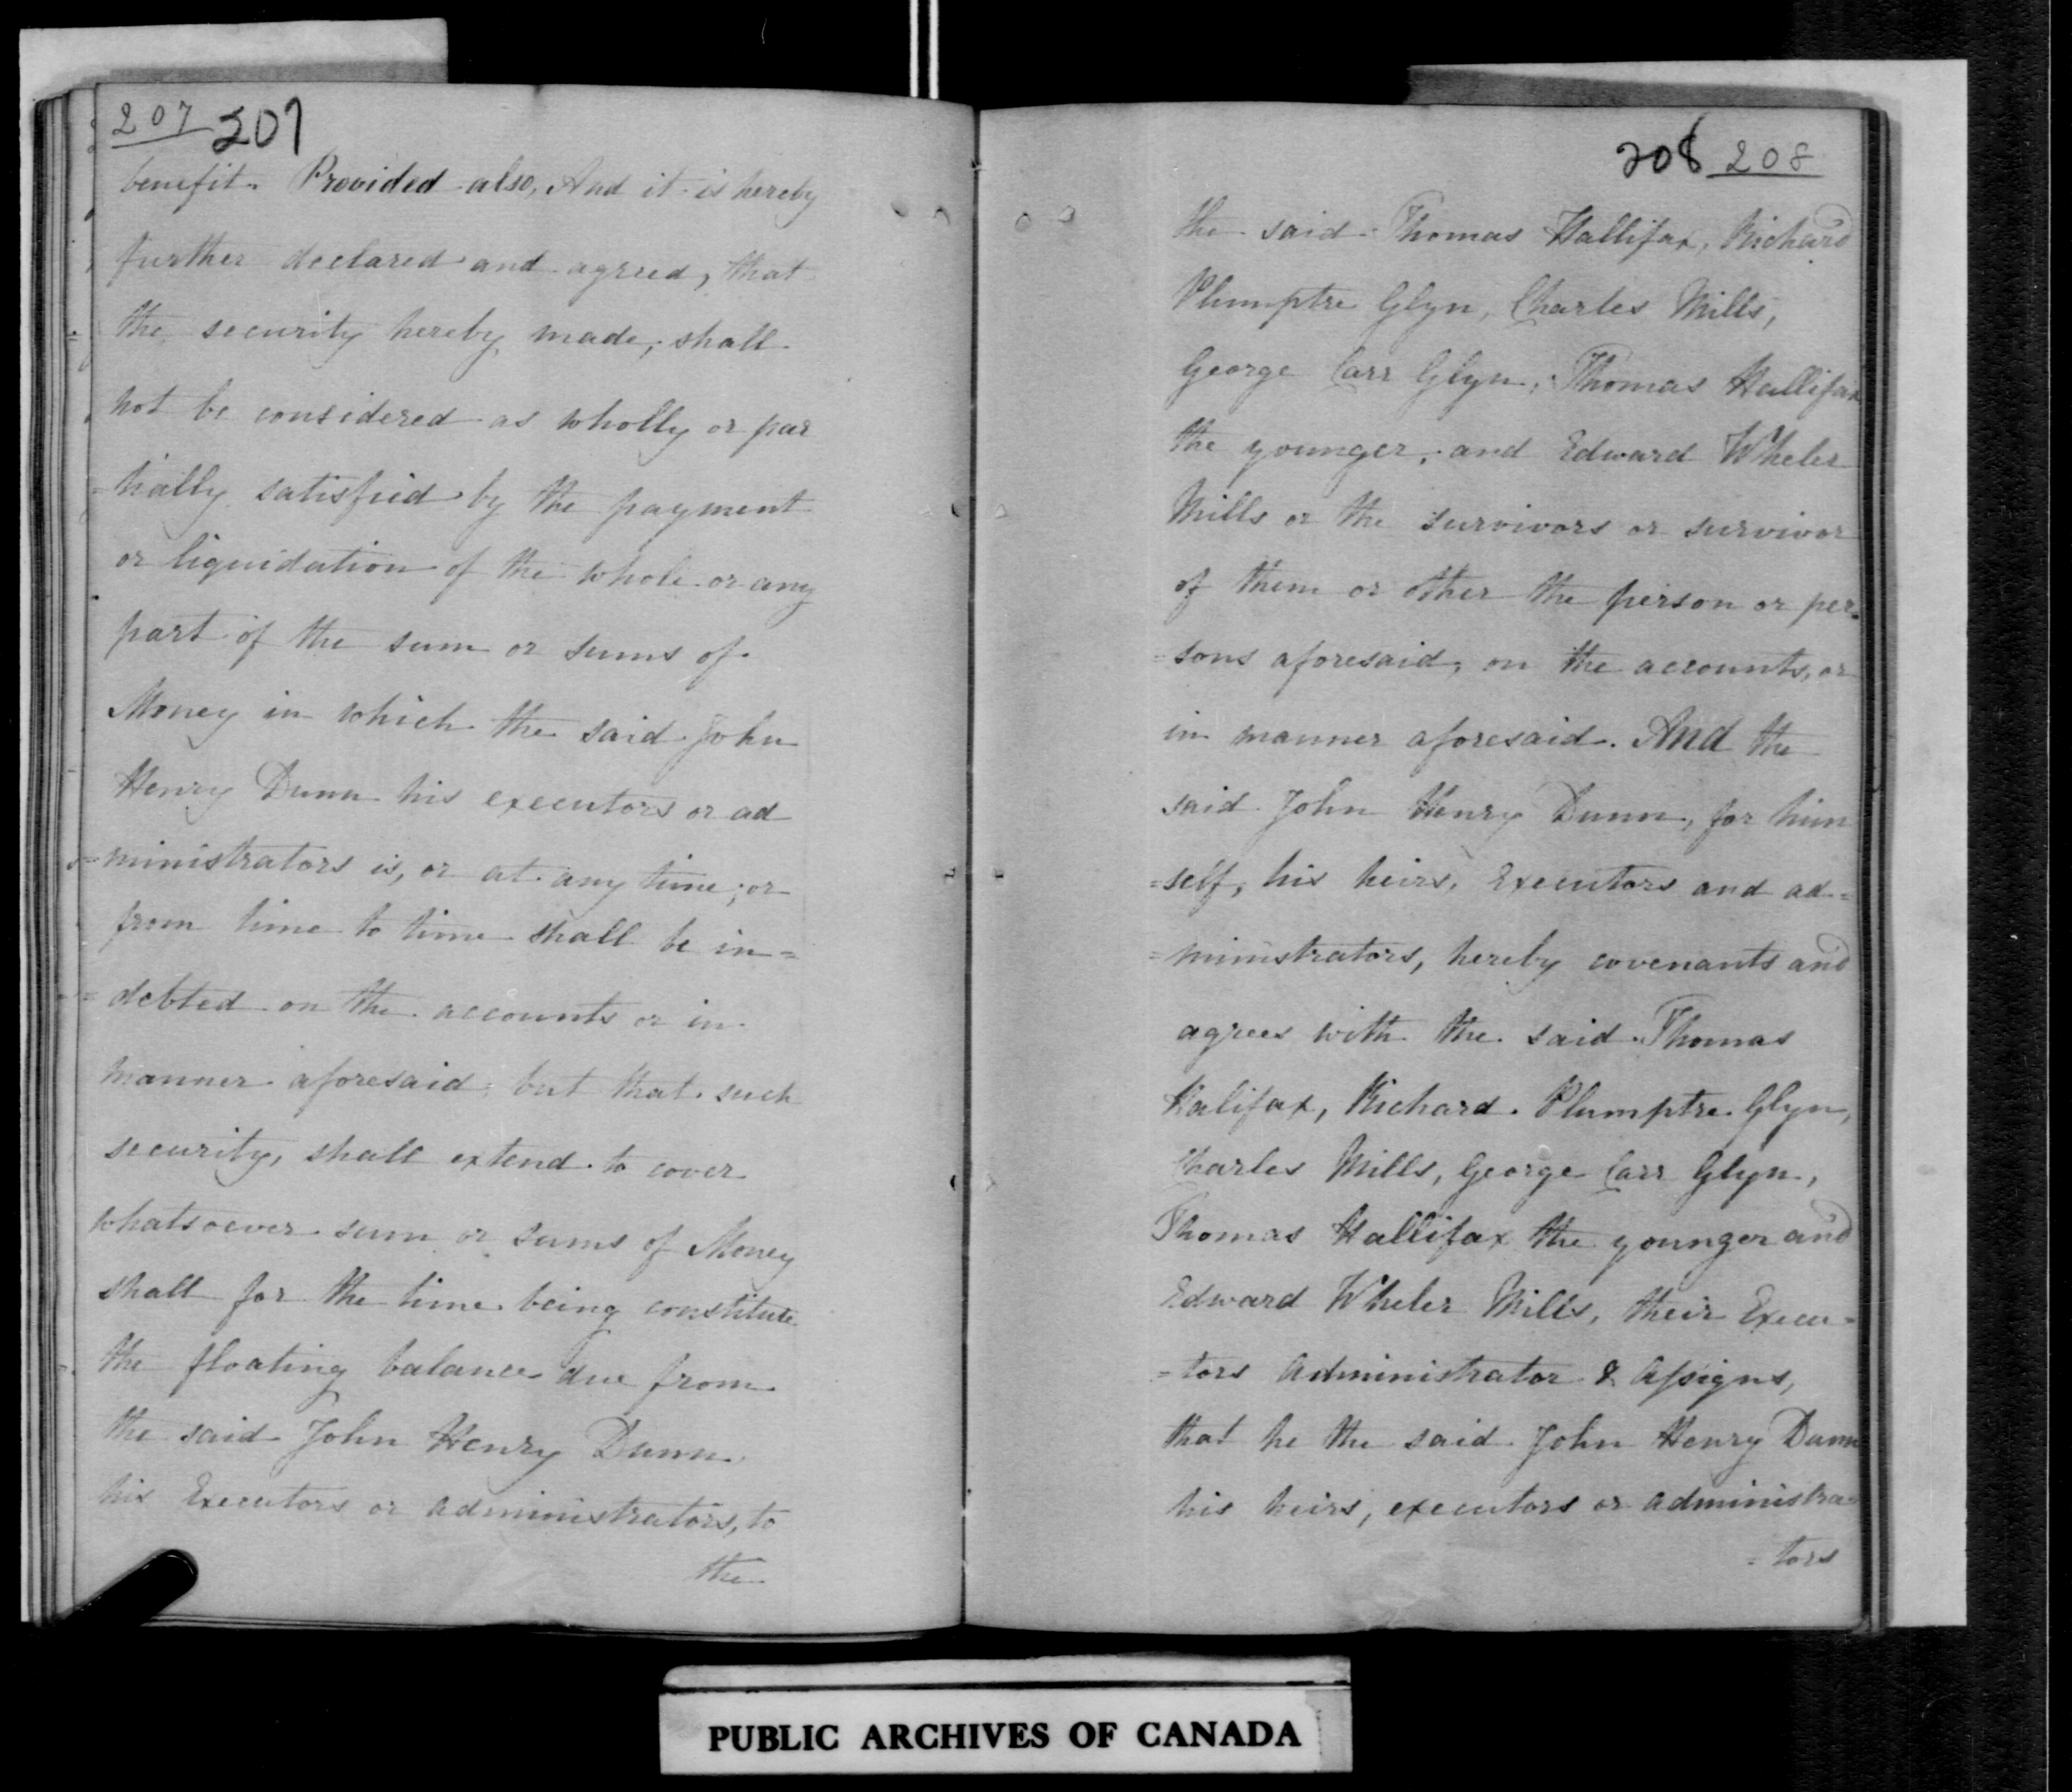 207 207
benefit. Provided also, And it is hereby
further declared and agreed, that
the security hereby made, shall
not be considered as wholly or par
=tially satisfied by the payment
or liquidation of the whole or any
part of the sum or sums of
Money in which the said John
Henry Dunn his executors or ad
=ministrators is, or at any time, or
from time to time shall be in=
=debted on the accounts or in
manner aforesaid, but that such
security, shall extend to cover
whatsoever sum or sums of Money
shall for the time being constitute
the floating balance due from
the said John Henry Dunn
his Executors or administrators, to
the
208 208
the said Thomas Hallifax, Richard
Plumptre Glyn, Charles Mills,
George Carr Glyn, Thomas Hallifax
the younger, and Edward Wheler
Mills or the survivors or survivor
of them or other the person or per=
=sons aforesaid, on the accounts, or
in manner aforesaid. And the
said John Henry Dunn, for him
=self, his heirs, Executors and ad=
=ministrators, hereby covenants and
agrees with the said Thomas
Halifax, Richard Plumptre Glyn,
Charles Mills, George Carr Glyn,
Thomas Hallifax the younger and
Edward Wheler Mills, their Execu=
=tors administrator & assigns,
that he the said John Henry Dunn
his heirs, executors or administra=
=tors
PUBLIC ARCHIVES OF CANADA